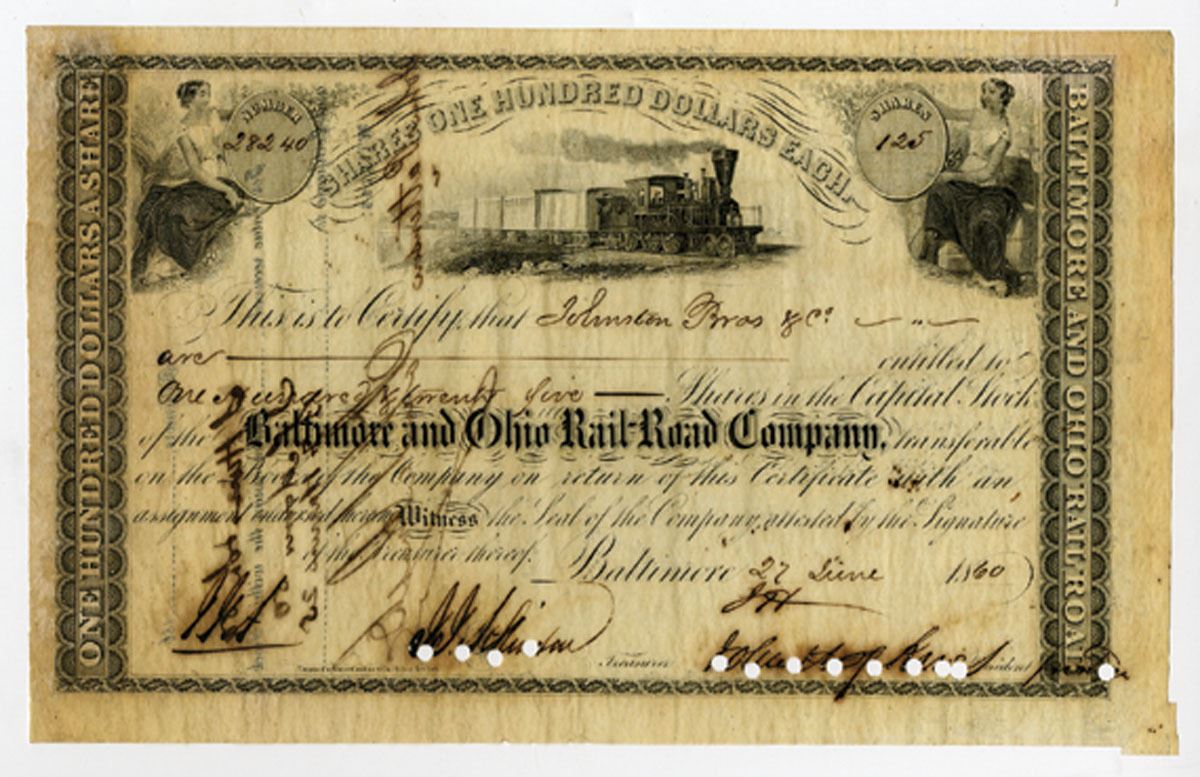 SHARES ONE HUNDRED DOLLARS EACH.
NUMBER
28240
SHARES
125
ONE HUNDRED DOLLARS A SHARE
BALTIMORE AND OHIO RAIL ROAD
This is to Certify, that Johnston Bros & Co.
are entitled to
One Hundred & twenty five Shares in the Capital Stock
of the Baltimore and Ohio Rail-Road Company, transferable
on the Books of the Company on return of this Certificate with an
assignment endorsed thereon Witness the Seal of the Company, attested by the Signature
of the Treasurer thereof.
Baltimore 27 June 1860
Treasurer
President